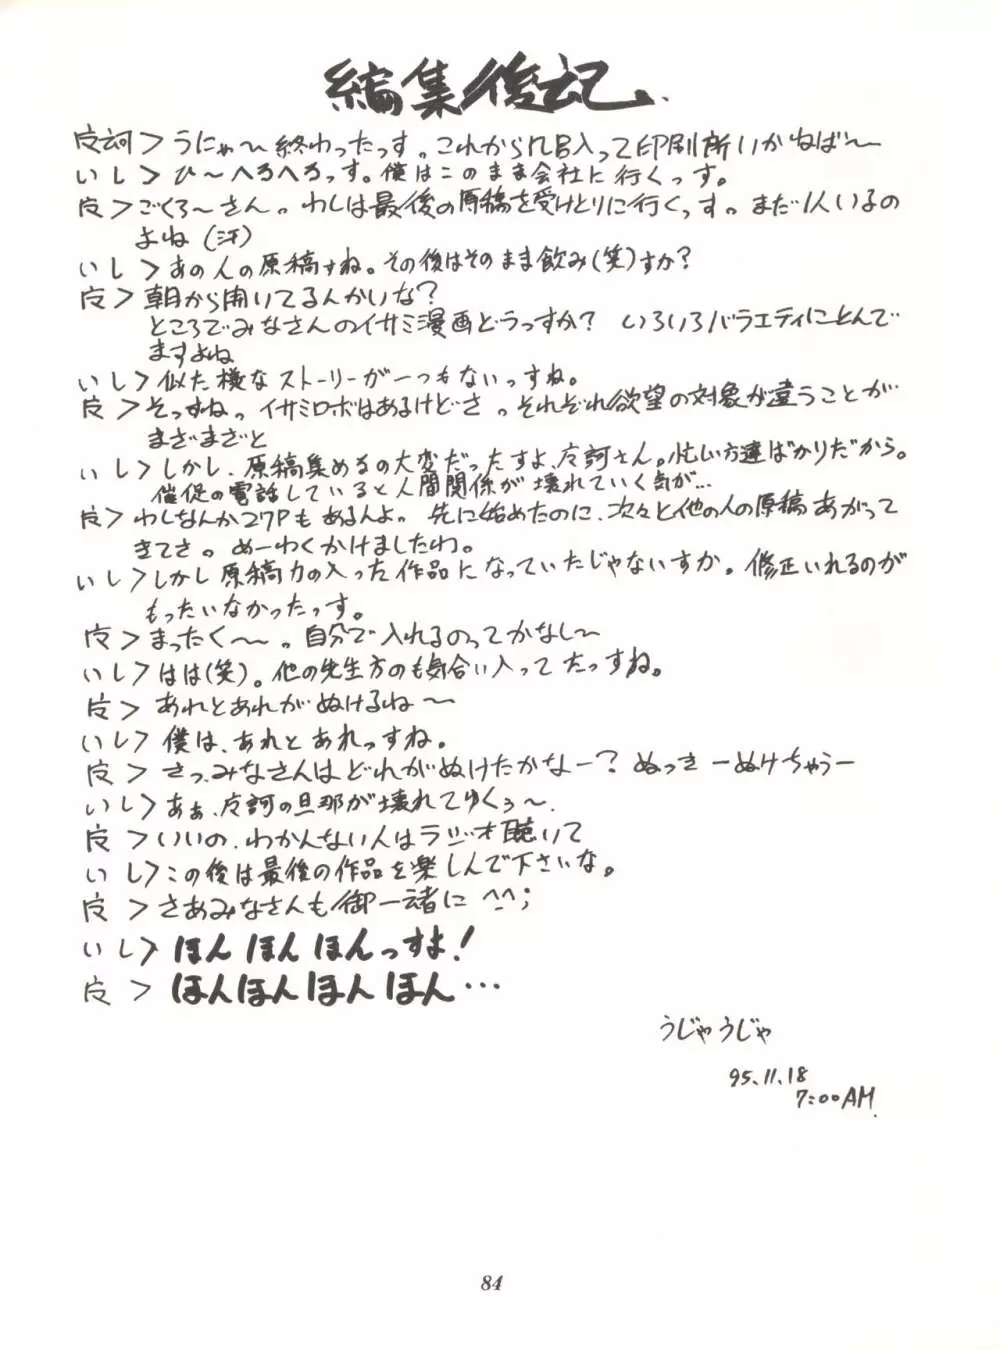 編集後記.
>うにゃ〜終わったっす。これから入って印刷所いかねば〜
いし>ひ〜へろへろっす。僕はこのまま会社に行くっす。
>ごくろ〜さん。わしは最後の原稿を受けとりに行くっす。まだ1人いるの
よね(汗)
いし>あの人の原稿すね。その後はそのまま飲み(笑)すか?
>朝から開いてるんかいな?
ところでみなさんのイサミ漫画どうっすか? いろいろバラエティにとんで
ますよね
いし>似た様なストーリーが一つもないっすね。
>そっすね。イサミロボはあるけどさ。それぞれ欲望の対象が違うことが
まざまざと
いし>しかし、原稿集めるの大変だったすよ、さん。忙しい方達ばかりだから。
催促の電話していると人間関係が壊れていく気が…
>わしなんか27Pもあるんよ。先に始めたのに、次々と他の人の原稿あがって
きてさ。めーわくかけましたわ。
いし>しかし原稿力の入った作品になっていたじゃないすか。修正いれるのが
もったいなかったっす。
>まったく〜〜。自分で入れるのってかなし〜
いし>はは(笑)。他の先生方のも気合い入ってたっすね。
>あれとあれがぬけるね〜
いし>僕は、あれとあれっすね。
>さっ、みなさんはどれがぬけたかなー? ぬっきーぬけちゃうー
いし>あぁ、の旦那が壊れてゆくぅ〜.
>いいの、わかんない人はラジオ聴いて
いし>この後は最後の作品を楽しんで下さいな。
>さあみなさんも御一緒に ^_^;
いし>ほん ほん ほんっすよ!
>ほんほんほんほん…
うじゃうじゃ
95.11.18
7:00AM.
84